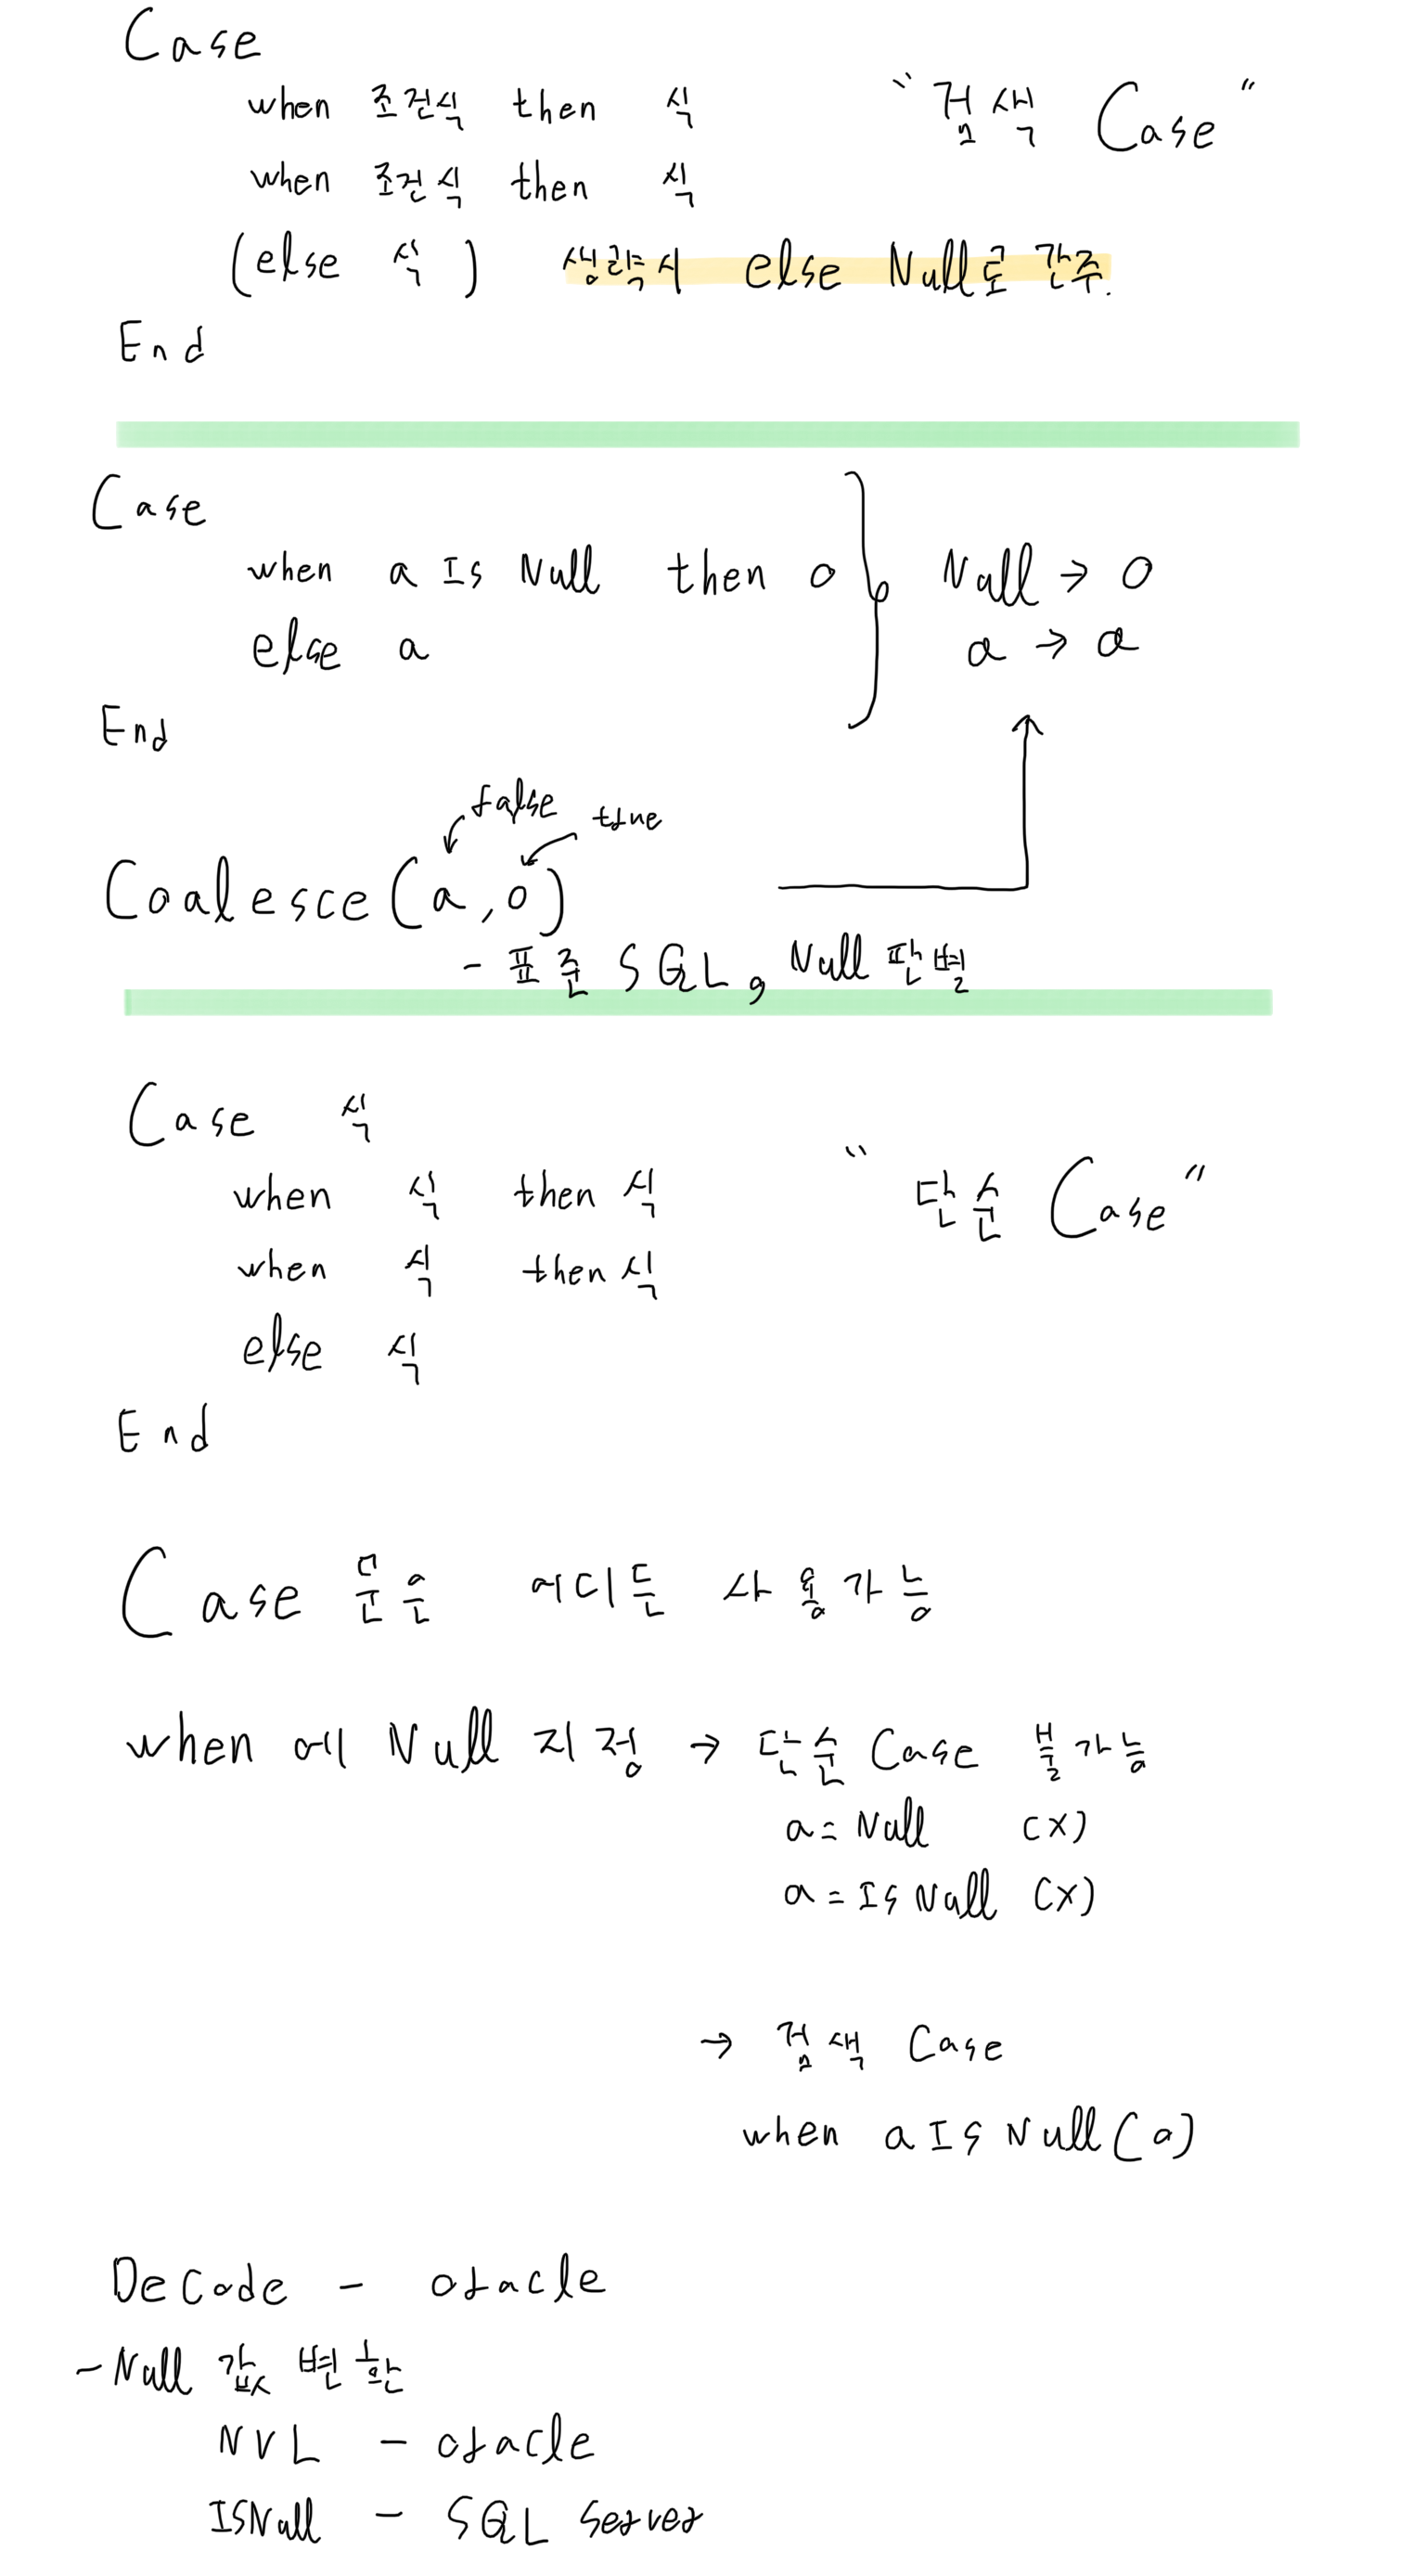 Case
when 조건식 then 식 "검색 Case"
when 조건식 then 식
(else 식) 생략시 else Null로 간주.
End
Case
when a Is Null then 0 Null → 0
else a a → a
End
false true
Coalesce(a,0)
- 표준 SQL, Null 판별
Case 식
when 식 then 식 "단순 Case"
when 식 then 식
else 식
End
Case 문은 어디든 사용가능
when 에 Null 지정 → 단순 Case 불가능
a = Null (X)
a = Is Null (X)
→ 검색 Case
when a Is Null (o)
Decode - oracle
- Null 값 변환
NVL - oracle
ISNull - SQL Server